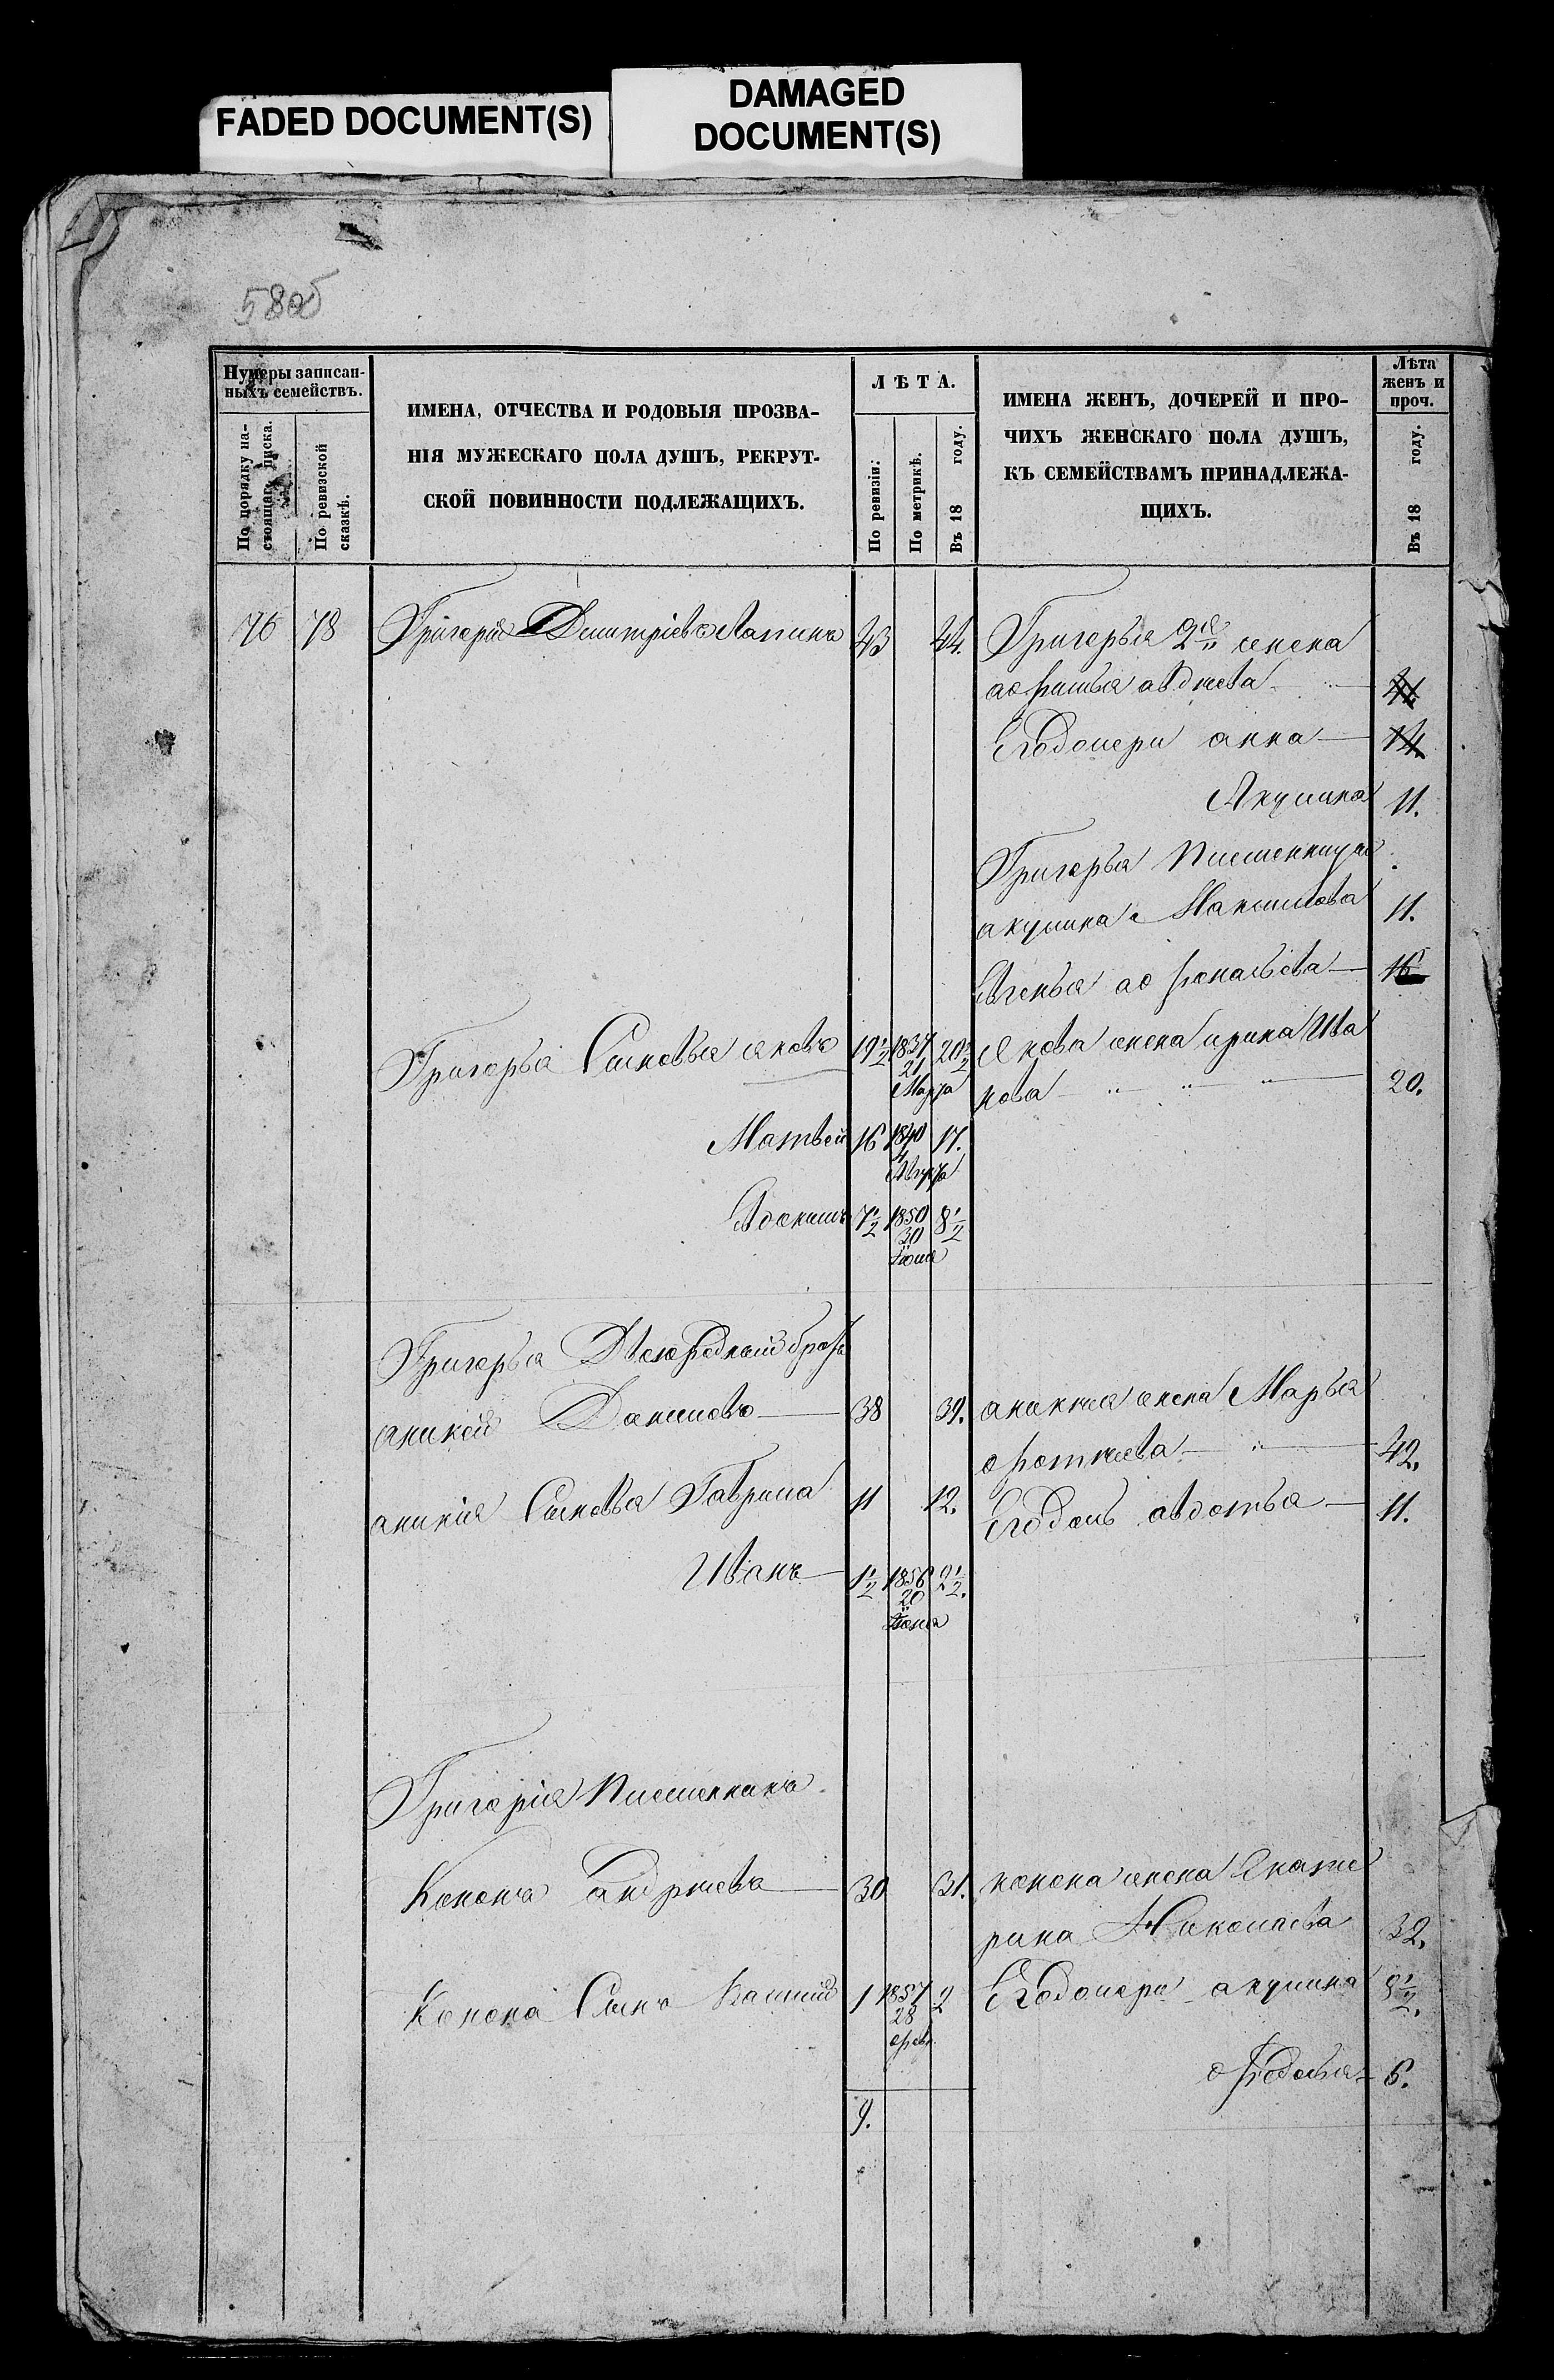 FADED DOCUMENT(S)
DAMAGED
DOCUMENT(S)
58об
Нумеры записан-
ныхъ семействъ.
По порядку на-
стоящаго списка.
По ревизской
сказкѣ.
ИМЕНА, ОТЧЕСТВА И РОДОВЫЯ ПРОЗВА-
НІЯ МУЖЕСКАГО ПОЛА ДУШЪ, РЕКРУТ-
СКОЙ ПОВИННОСТИ ПОДЛЕЖАЩИХЪ.
ЛѢТА.
По ревизіи:
По метрикѣ.
Въ 18 году.
ИМЕНА ЖЕНЪ, ДОЧЕРЕЙ И ПРО-
ЧИХЪ ЖЕНСКАГО ПОЛА ДУШЪ,
КЪ СЕМЕЙСТВАМЪ ПРИНАДЛЕЖА-
ЩИХЪ.
Лѣта
женъ и
проч.
Въ 18 году.
76 78 Григорій Дмитріевъ Лапинъ 43 44. Григорья 2я жена
афимья авдѣева
Егодочери анна 14.
Акулина 11.
Григорья Племенница
акулина Максимова 11.
Евгенья афонасьева 16
Григорья Сыновья яковъ 19½ 1837 20½ Якова жена ирина Ива
21
Марта
нова 20.
Матвей 16 1840 17.
4
Августа
7½ 1850 8½
30
Іюня
Григорья Двоюродный братъ
аникей Даниловъ 38 39. аникѣя жена Марья
фотѣева 42.
аникія Сыновья Гаврила 11 12. Егодочь авдотья 11.
Иванъ 1½ 1856 2½.
20
Іюня
Григорія Племенникъ
Кононъ андрѣевъ 30 31. конона жена Екате
рина Николаева 32.
Конона Сынъ 1 1857 2 Егодочери акулина 8½.
28
февр.
федосья 6.
9.